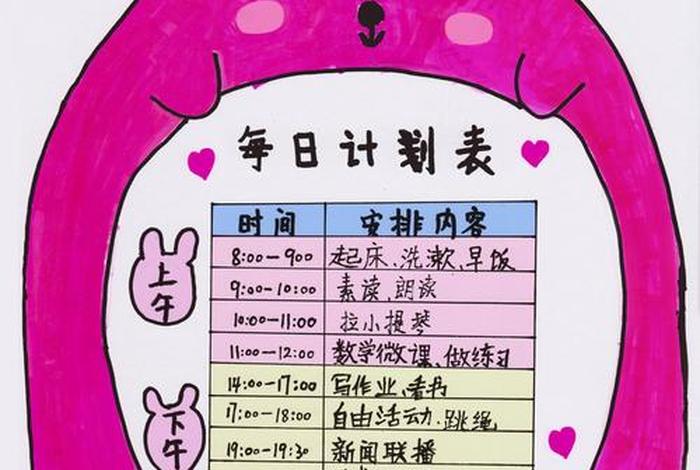 每日计划表
时间 安排内容
上午
8:00-900 起床、洗漱、早饭
9:00-10:00 素读、朗读
10:00-11:00 拉小提琴
11:00-12:00 数学微课、做练习
下午
14:00-17:00 写作业、看书
17:00-18:00 自由活动、跳绳
19:00-19:30 新闻联播